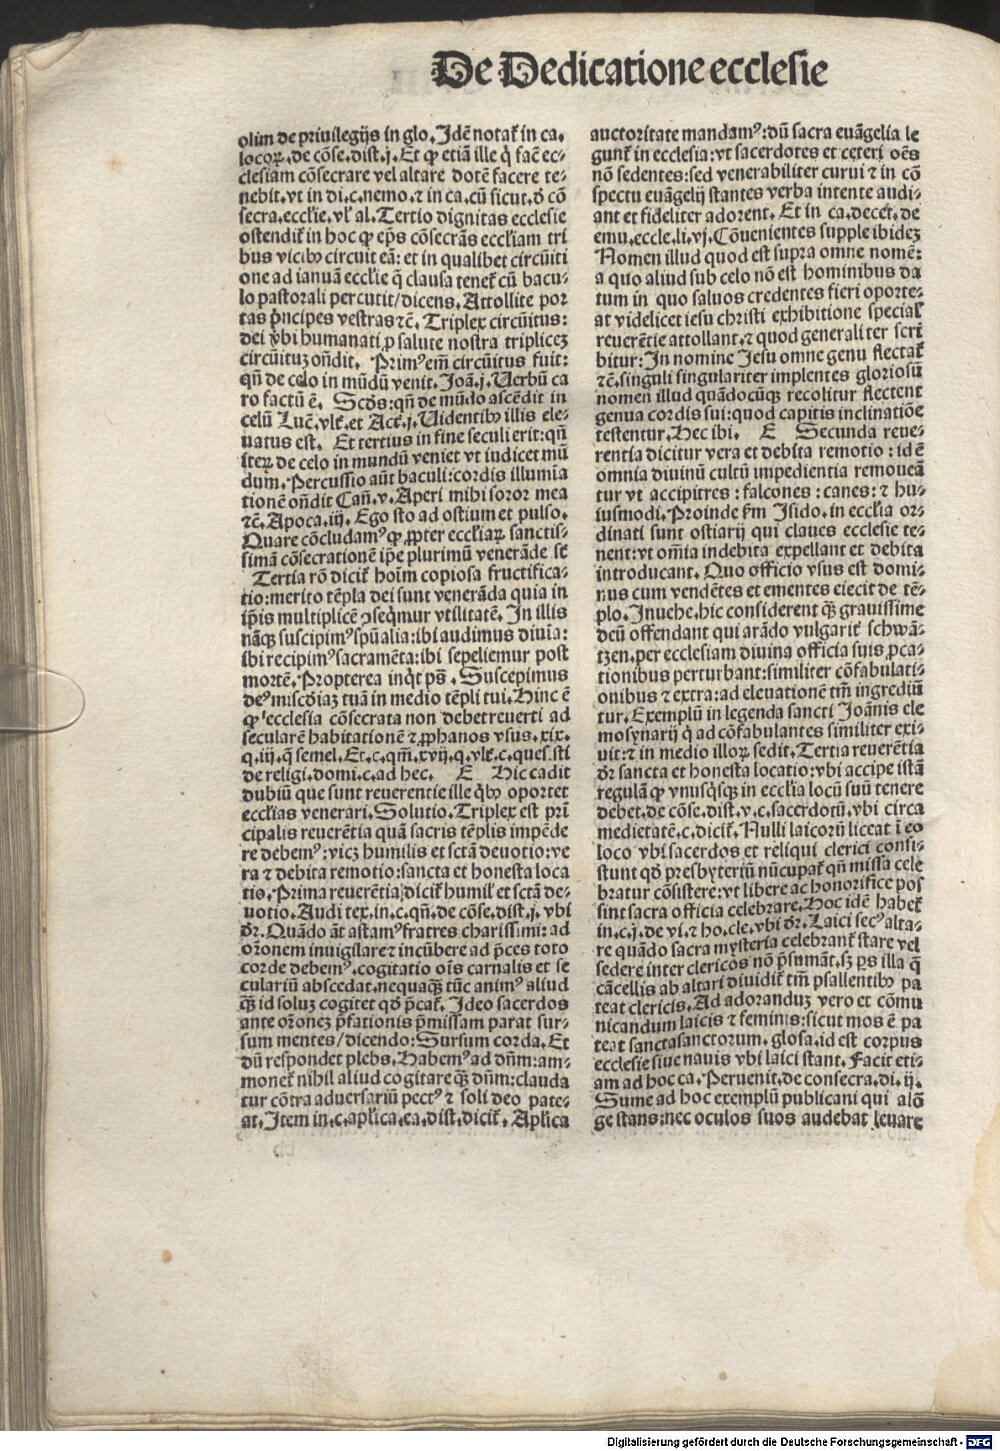 De Dedicatione ecclesie
olim de priuilegijs in glo. Jdē notať in ca.
locoꝝ. de cōse. dist. j. Et ꝙ etiā ille q̇ facē ec-
clesiam cōsecrare vel altare dotē facere te-
nebit. vt in di. c. nemo. ⁊ in ca. cū sicut. ð cō
secra. ecclie. vľ al. Tertio dignitas ecclesie
ostendiť in hoc ꝙ ep̄s cōsecrās eccliam tri
bus vicibꝰ circuit eā: et in qualibet circūiti
one ad ianuā ecclie q̄ clausa teneť cū bacu-
lo pastorali percutit/dicens. Attollite por
tas p̄ncipes vestras ⁊c̄. Triplex circūitus:
dei v̓bi humanati ꝓ salute nostra triplicez
circūituz on̄dit. Primꝰ em̄ circūitus fuit:
qn̄ de celo in mūdū venit. Joā. j. Uerbū ca
ro factū ē. Scďs: qn̄ de mūdo ascēdit in
celū Luc̄. vlť. et Acť. j. Uidentibꝰ illis ele-
uatus est. Et tertius in fine seculi erit: qn̄
iteꝝ de celo in mundū veniet vt iudicet mū
dum. Percussio aūt baculi: cordis illumīa
tionē on̄dit Cañ. v. Aperi mihi soror mea
⁊c̄. Apoca. iij. Ego sto ad ostium et pulso.
Quare cōcludamꝰ ꝙ ꝓpter eccliaꝝ sanctis-
simā cōsecrationē ip̄e plurimū venerāde sť
Tertia rō diciť hoīm copiosa fructifica-
tio: merito tēpla dei sunt venerāda quia in
ip̄is multiplicē ꝯseq̇mur vtilitatē. Jn illis
nāqꝫ suscipimꝰ spūalia: ibi audimus diuīa:
ibi recipimꝰ sacramēta: ibi sepeliemur post
mortē. Propterea inq̇t ps̄. Suscepimus
deꝰ mīscďiaz tuā in medio tēpli tui. Hinc ē
ꝙ ecclesia cōsecrata non debet reuerti ad
secularē habitationē ⁊ ꝓphanos vsus. xix.
q. iij. q̄ semel. Et. c. qm̄. xvij. q. vlť. c. ques sti
de religi. domi. c. ad hec. E Hic cadit
dubiū que sunt reuerentie ille q̇bꝰ oportet
ecclias venerari. Solutio. Triplex est prī
cipalis reuerētia quā sacris tēplis impēde
re debemꝰ: vicz humilis et sctā deuotio: ve
ra ⁊ debita remotio: sancta et honesta loca
tio. Prima reuerētia diciť humiľ et sctā de-
uotio. Audi tex. in. c. qn̄. de cōse. dist. j. vbi
dr̄. Quādo āt astamꝰ fratres charissimi: ad
orōnem inuigilare ⁊ incūbere ad p̄ces toto
corde debemꝰ. cogitatio oīs carnalis et se
culariū abscedat. nequaqꝫ tūc animꝰ aliud
qꝫ id soluz cogitet qð p̄cať. Jdeo sacerdos
ante orōnez p̄fationis p̄missam parat sur-
sum mentes/dicendo: Sursum corda. Et
dū respondet plebs. Habemꝰ ad dn̄m: am-
moneť nihil aliud cogitare qꝫ dn̄m: clauda
tur cōtra aduersariū pectꝰ ⁊ soli deo pate-
at. Jtem in. c. aplica. ea. dist. diciť. Aplica
auctoritate mandamꝰ: dū sacra euāgelia le
gunť in ecclesia: vt sacerdotes et ceteri oēs
nō sedentes: sed venerabiliter curui ⁊ in cō
spectu euāgelij stantes verba intente audi-
ant et fideliter adorent. Et in ca. decet. de
emu. eccle. li. vj. Cōuenientes supple ibidez
Nomen illud quod est supra omne nomē:
a quo aliud sub celo nō est hominibus da
tum in quo saluos credentes fieri oporte-
at videlicet iesu christi exhibitione speciať
reuerētie attollant. ⁊ quod generaliter scri
bitur: Jn nomine Jesu omne genu flectať
⁊c̄. singuli singulariter implentes gloriosū
nomen illud quādocūqꝫ recolitur flectent
genua cordis sui: quod capitis inclinatiōe
testentur. Hec ibi. E Secunda reue-
rentia dicitur vera et debita remotio: id ē
omnia diuinū cultū impedientia remoueā
tur vt accipitres: falcones: canes: ⁊ hu-
iusmodi. Proinde fm̄ Jsido. in ecclia or-
dinati sunt ostiarij qui claues ecclesie te-
nent: vt om̄ia indebita expellant et debita
introducant. Quo officio vsus est domi-
nus cum vendētes et ementes eiecit de tē-
plo. Jn uehe. hic considerent qꝫ grauissime
deū offendant qui arādo vulgariť schwā-
tzen. per ecclesiam diuina officia suis ꝓca-
tionibus perturbant: similiter cōfabulati-
onibus ⁊ extra: ad eleuationē tm̄ ingrediū
tur. Exemplū in legenda sancti Joānis ele
mosynarij q̇ ad cōfabulantes similiter exi-
uit: ⁊ in medio illoꝝ sedit. Tertia reuerētia
dr̄ sancta et honesta locatio: vbi accipe istā
regulā ꝙ vnusq̇sqꝫ in ecclia locū suū tenere
debet. de cōse. dist. v. c. sacerdotū. vbi circa
medietatē. c. diciť. Nulli laicorū liceat ī eo
loco vbi sacerdos et reliqui clerici consi-
stunt qð presbyteriū nūcupať qn̄ missa cele
bratur cōsistere: vt libere ac honorifice pos
sint sacra officia celebrare. Hoc idē habeť
in. c. j. de vi. ⁊ ho. cle. vbi dr̄. Laici secꝰ alta-
re quādo sacra mysteria celebranť stare vel
sedere inter clericos nō p̄sumāt. sꝫ ps illa q̄
cācellis ab altari diuidiť tm̄ psallentibꝰ pa
teat clericis. Ad adoranduz vero et cōmu
nicandum laicis ⁊ feminis: sicut mos ē pa
teat sancta sanctorum. glosa. id est corpus
ecclesie siue nauis vbi laici stant. Facit eti-
am ad hoc ca. Peruenit. de consecra. di. ij.
Sume ad hoc exemplū publicani qui a lō
ge stans: nec oculos suos audebat leuare
Digitalisierung gefördert durch die Deutsche Forschungsgemeinschaft - DFG